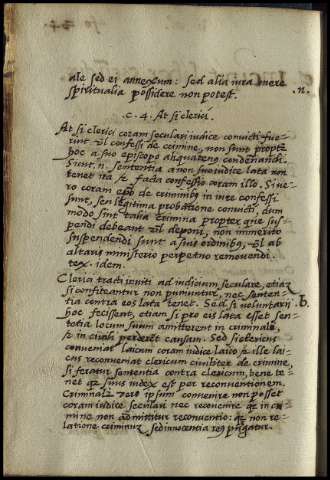 ale sed ei annexum: sed alia iura mere
spiritualia possidere non potest. .n.
c. 4. At si clerici.
At si clerici coram seculari iudice convicti fue-
runt vl confessi de crimine, non sunt propte
hoc a suo episcopo aliquatenq condenandi.
Sunt .n. sententia a non suo iudice lata non
tenet ita et facta confessio coram illo. Si ve-
ro coram epo de criminib in iure confessi
sunt, seu legitima probatione convicti, dum
modo sint talia crimina propter que sus-
pendi debeant vl deponi, non immerito
suspendendi sunt a suis ordinibq, vl ab
altaris ministerio perpetuo removendi.
tex. idem.
Clerici tracti inviti ad iudicium seculare, etiaz
si confiteantur non puniuntur, nec senten-
tia contra eos lata tenet. Sed si voluntarii .b.
hoc fecissent, etiam si pro eis lata esset sen-
tetia locum suum amitterent in criminali,
et in civili perderet causam. Sed si clericus
conveniat laicum coram iudice laico et ille lai-
cus reconveniat clericum civiliter de crimine,
si feratur sententia contra clericum, bene te-
net qz suus iudex est per reconventionem.
Criminalr vero ipsum convenire non posset
coram iudice seculari nec reconvenire qz in cri-
mine non admittitur reconventio: qz non re-
latione criminuz, sed innocentia req purgatur.